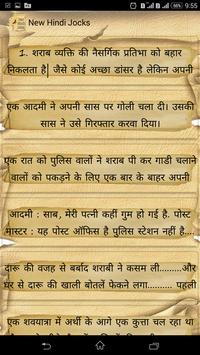 9:55
New Hindi Jocks
1. शराब व्यक्ति की नैसर्गिक प्रतिभा को बहार
निकलता है| जैसे कोई अच्छा डांसर है लेकिन अपनी
एक आदमी ने अपनी सास पर गोली चला दी। उसकी
सास ने उसे गिरफ्तार करवा दिया।
एक रात को पुलिस वालों ने शराब पी कर गाडी चलाने
वालों को पकड़ने के लिए एक बार के बाहर अपनी
आदमी : साब, मेरी पत्नी कहीं गुम हो गई है. पोस्ट
मास्टर : यह पोस्ट ऑफिस है पुलिस स्टेशन नहीं है....
दारू की वजह से बर्बाद शराबी ने कसम ली.........और
घर से दारू की खाली बोतलें फेकने लगा.......... पहली
एक शवयात्रा में अर्थी के आगे एक कुत्ता चल रहा था